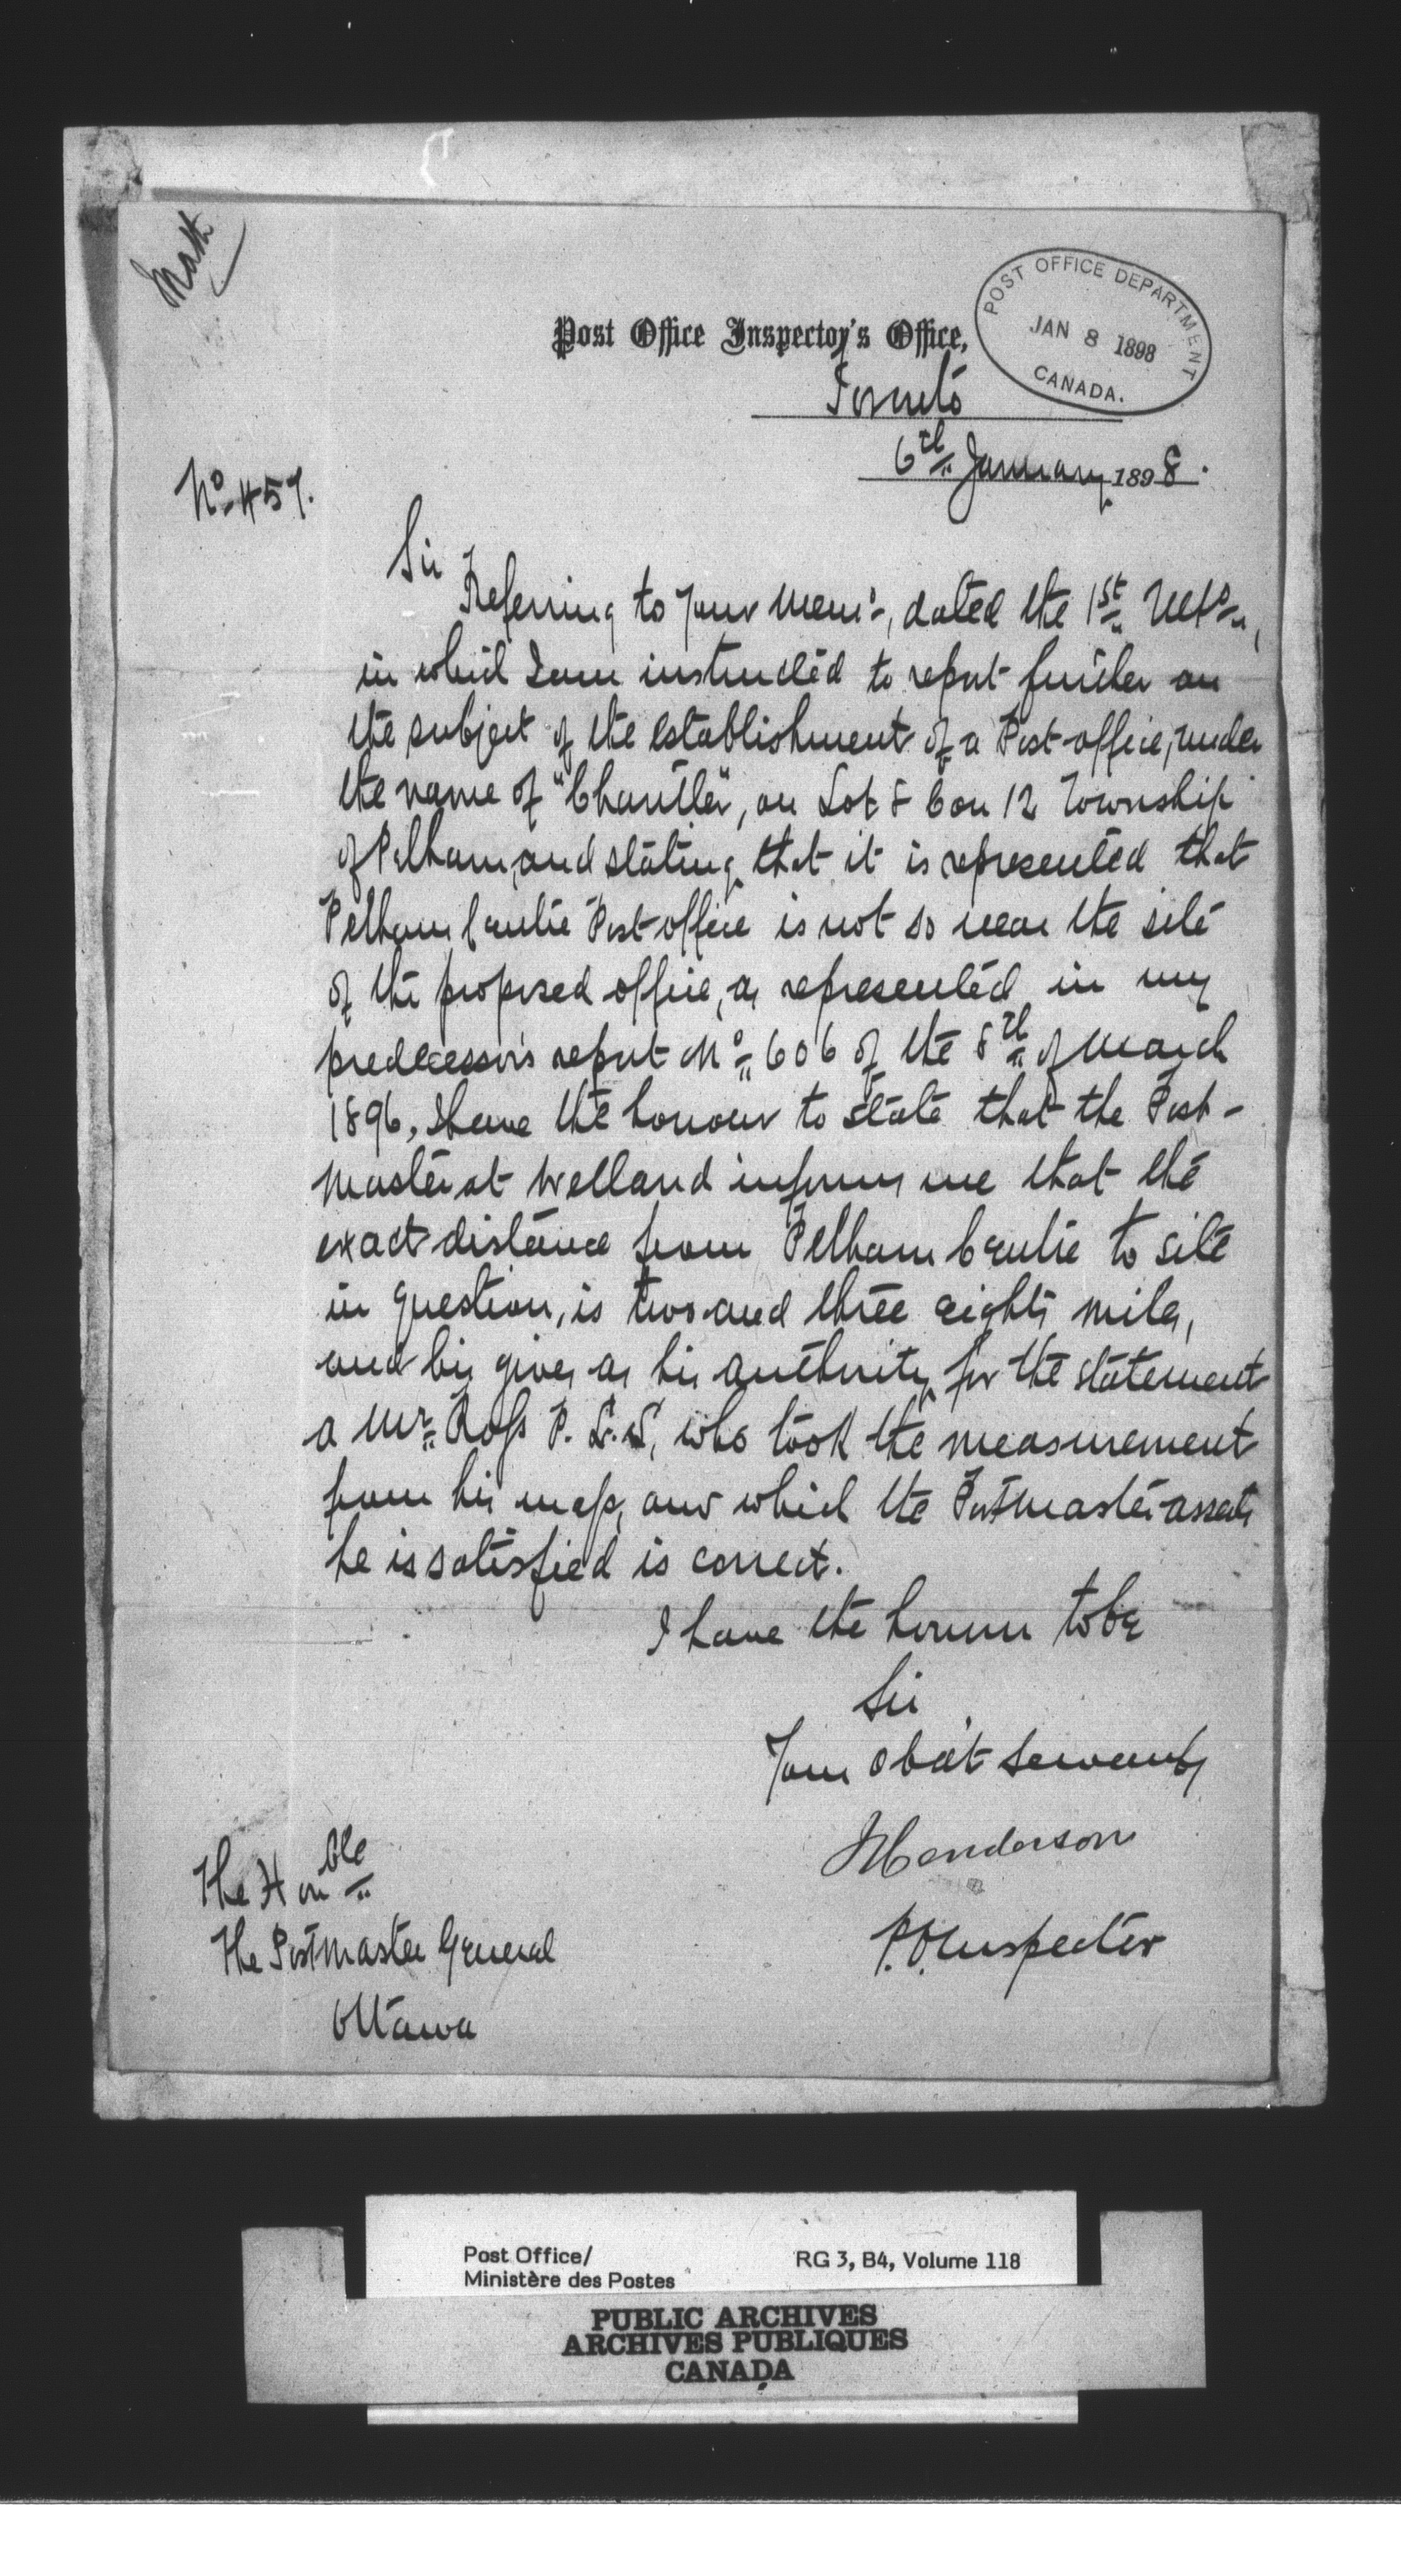 Math
POST OFFICE DEPARTMENT
JAN 8 1898
CANADA.
Post Office Inspector's Office,
Toronto
6th January 1898.
No 457.
Sir
Referring to your Memo, dated the 1st Ulto,
in which I am instructed to report further on
the subject of the establishment of a Post-office, under
the name of "Chantler", on Lot 8 Con 12 Township
of Pelham, and stating that it is represented that
Pelham Centre Post office is not so near the site
of the proposed office, as represented in my
predecessor's report No 606 of the 8th of March
1896, I have the honour to state that the Post-
master at Welland informs me that the
exact distance from Pelham Centre to site
in question, is two and three eights miles,
and his gives as his authority for the statement
a Mr Ross P. L. S. who took the measurement
from his map, and which the Postmaster asserts
he is satisfied is correct.
I have the honour to be
Sir
Your Obdt Servant
Henderson
P.O. Inspector
The Honble
The Postmaster General
Ottawa
Post Office/
Ministère des Postes
RG 3, B4, Volume 118
PUBLIC ARCHIVES
ARCHIVES PUBLIQUES
CANADA